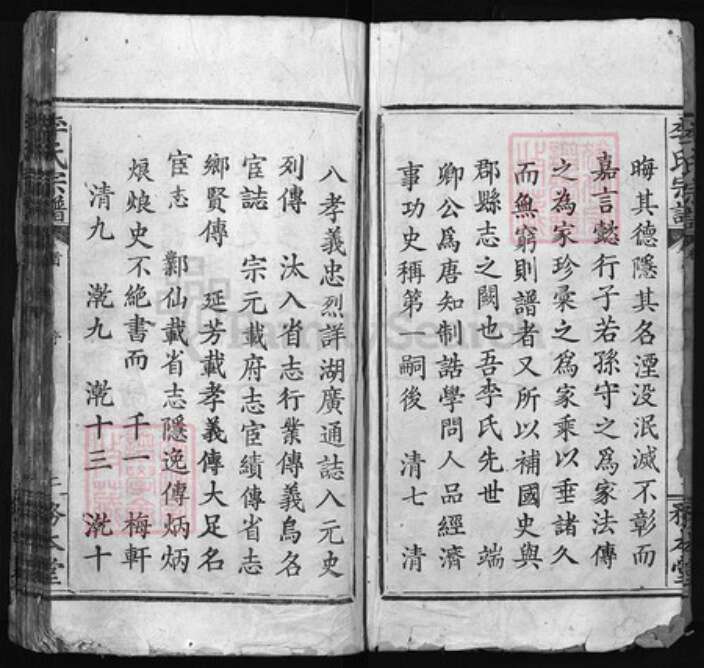 李氏宗譜
晦其德隱其名湮没泯滅不彰而
嘉言懿行子若孫守之爲家法傳
之為家珍彙之爲家乘以垂諸久
而無窮則譜者又所以補國史與
郡縣志之闕也吾李氏先世 端
卿公爲唐知制誥學問人品經濟
事功史稱第一嗣後 清七 清
務本堂
八孝義忠烈詳湖廣通誌入元史
列傳 汰入省志行業傳義鳥名
宦誌 宗元載府志宦績傳省志
鄉賢傳 延芳載孝義傳大足名
宦志 鄴仙載省志隱逸傳炳炳
烺烺史不絶書而 千一 梅軒
清九 漖九 漖十三 漖十
李氏宗譜
務本堂
FamilySearch